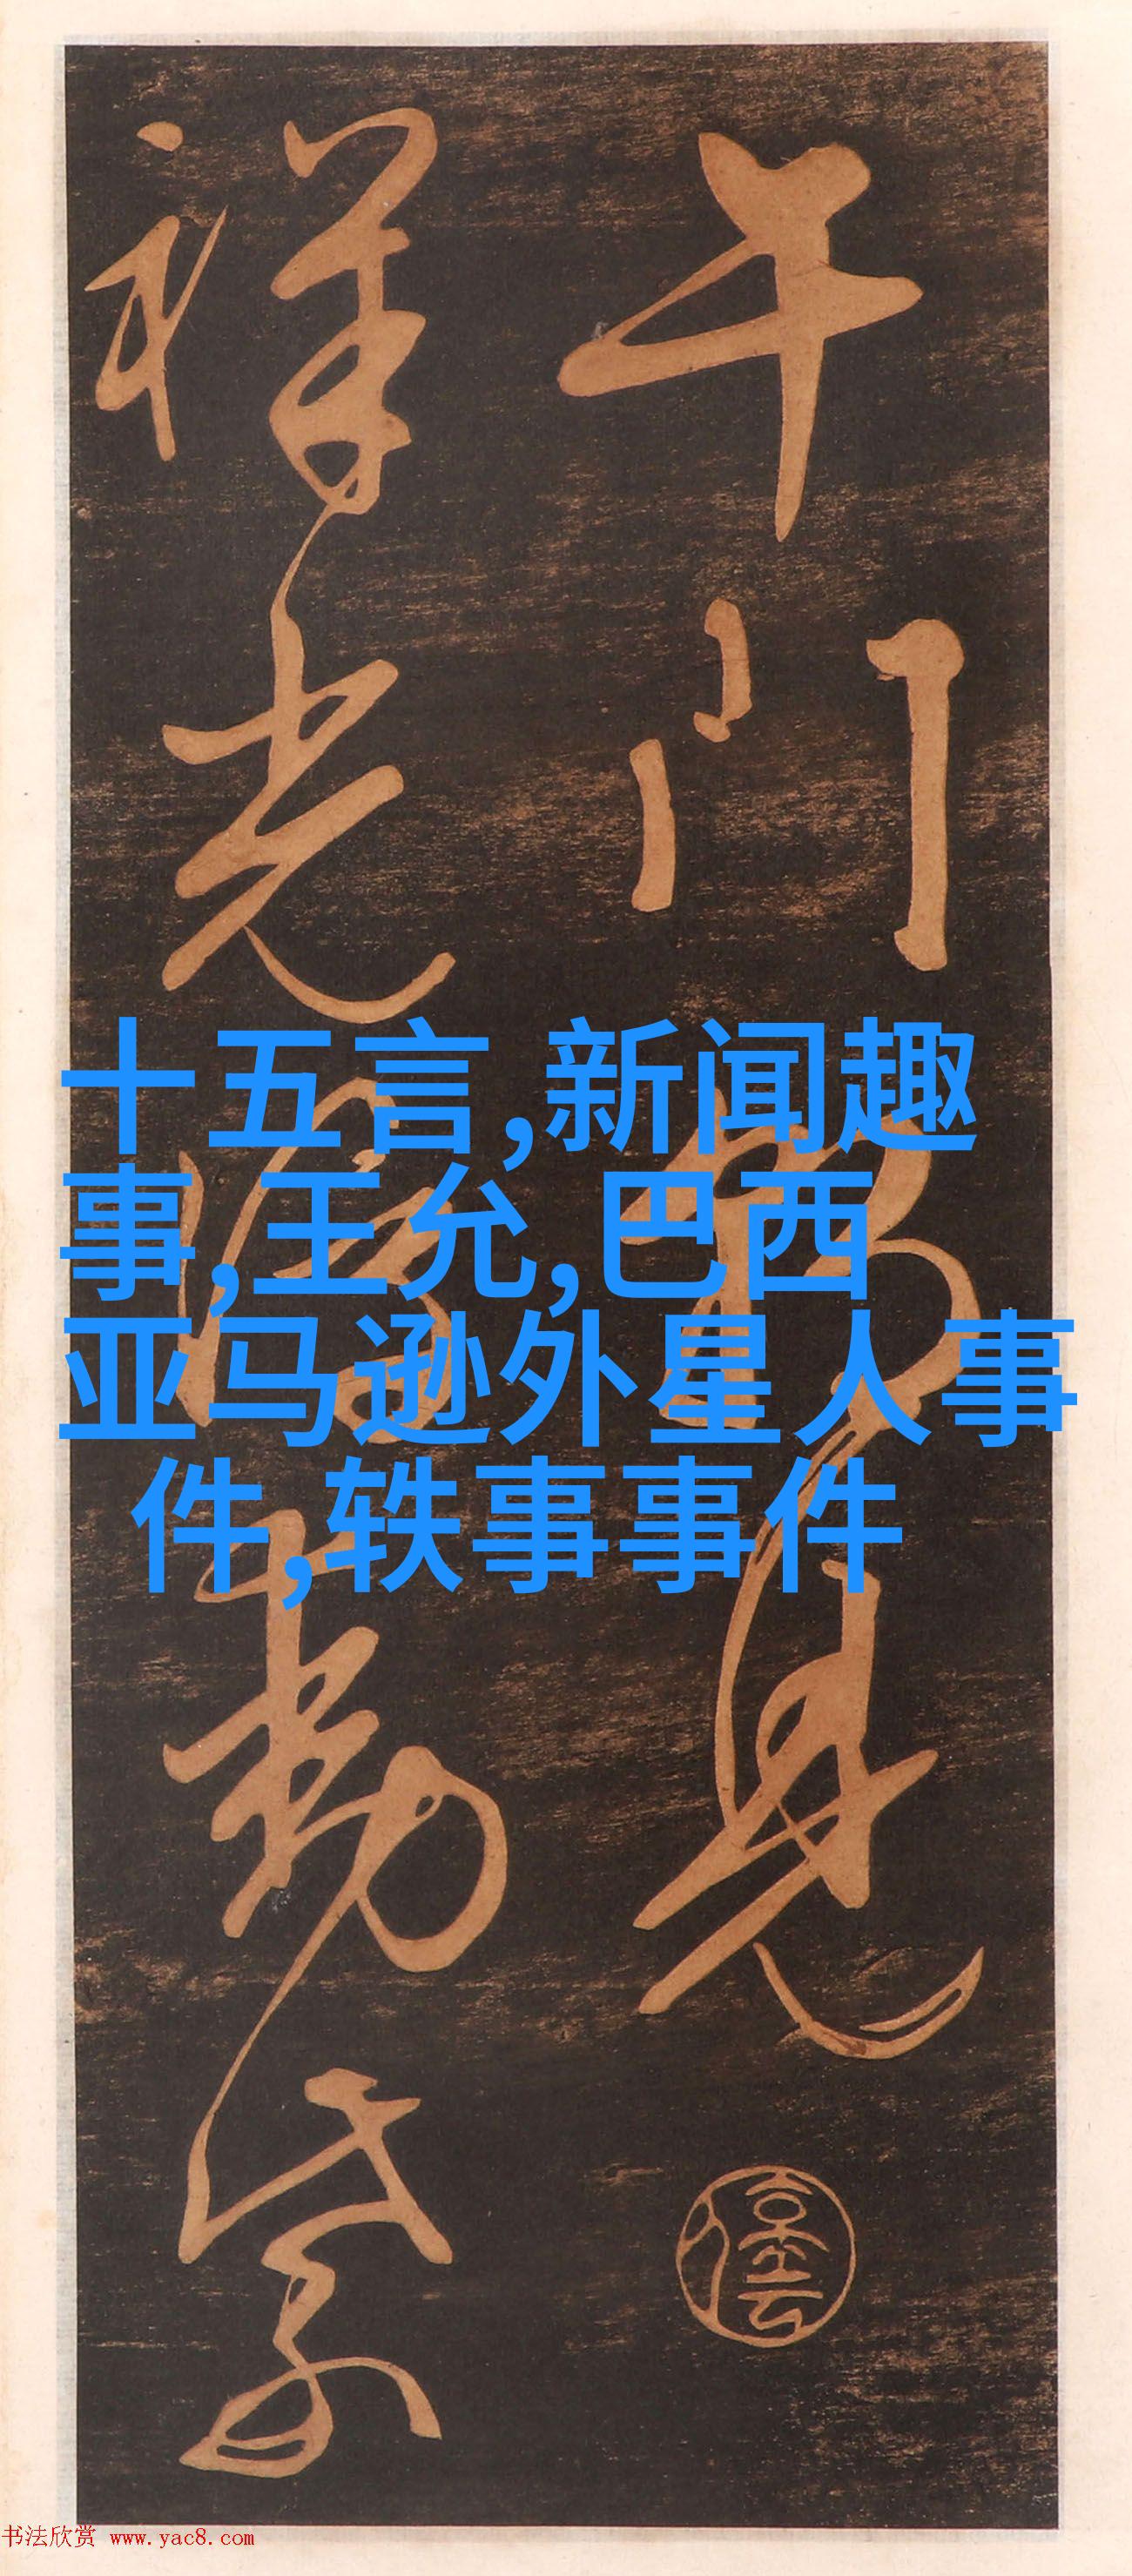 午门
見
祥光
動紫
十五言,新闻趣
事,王允,巴西
亚马逊外星人事
件,轶事事件
书法欣赏 www.yac8.com